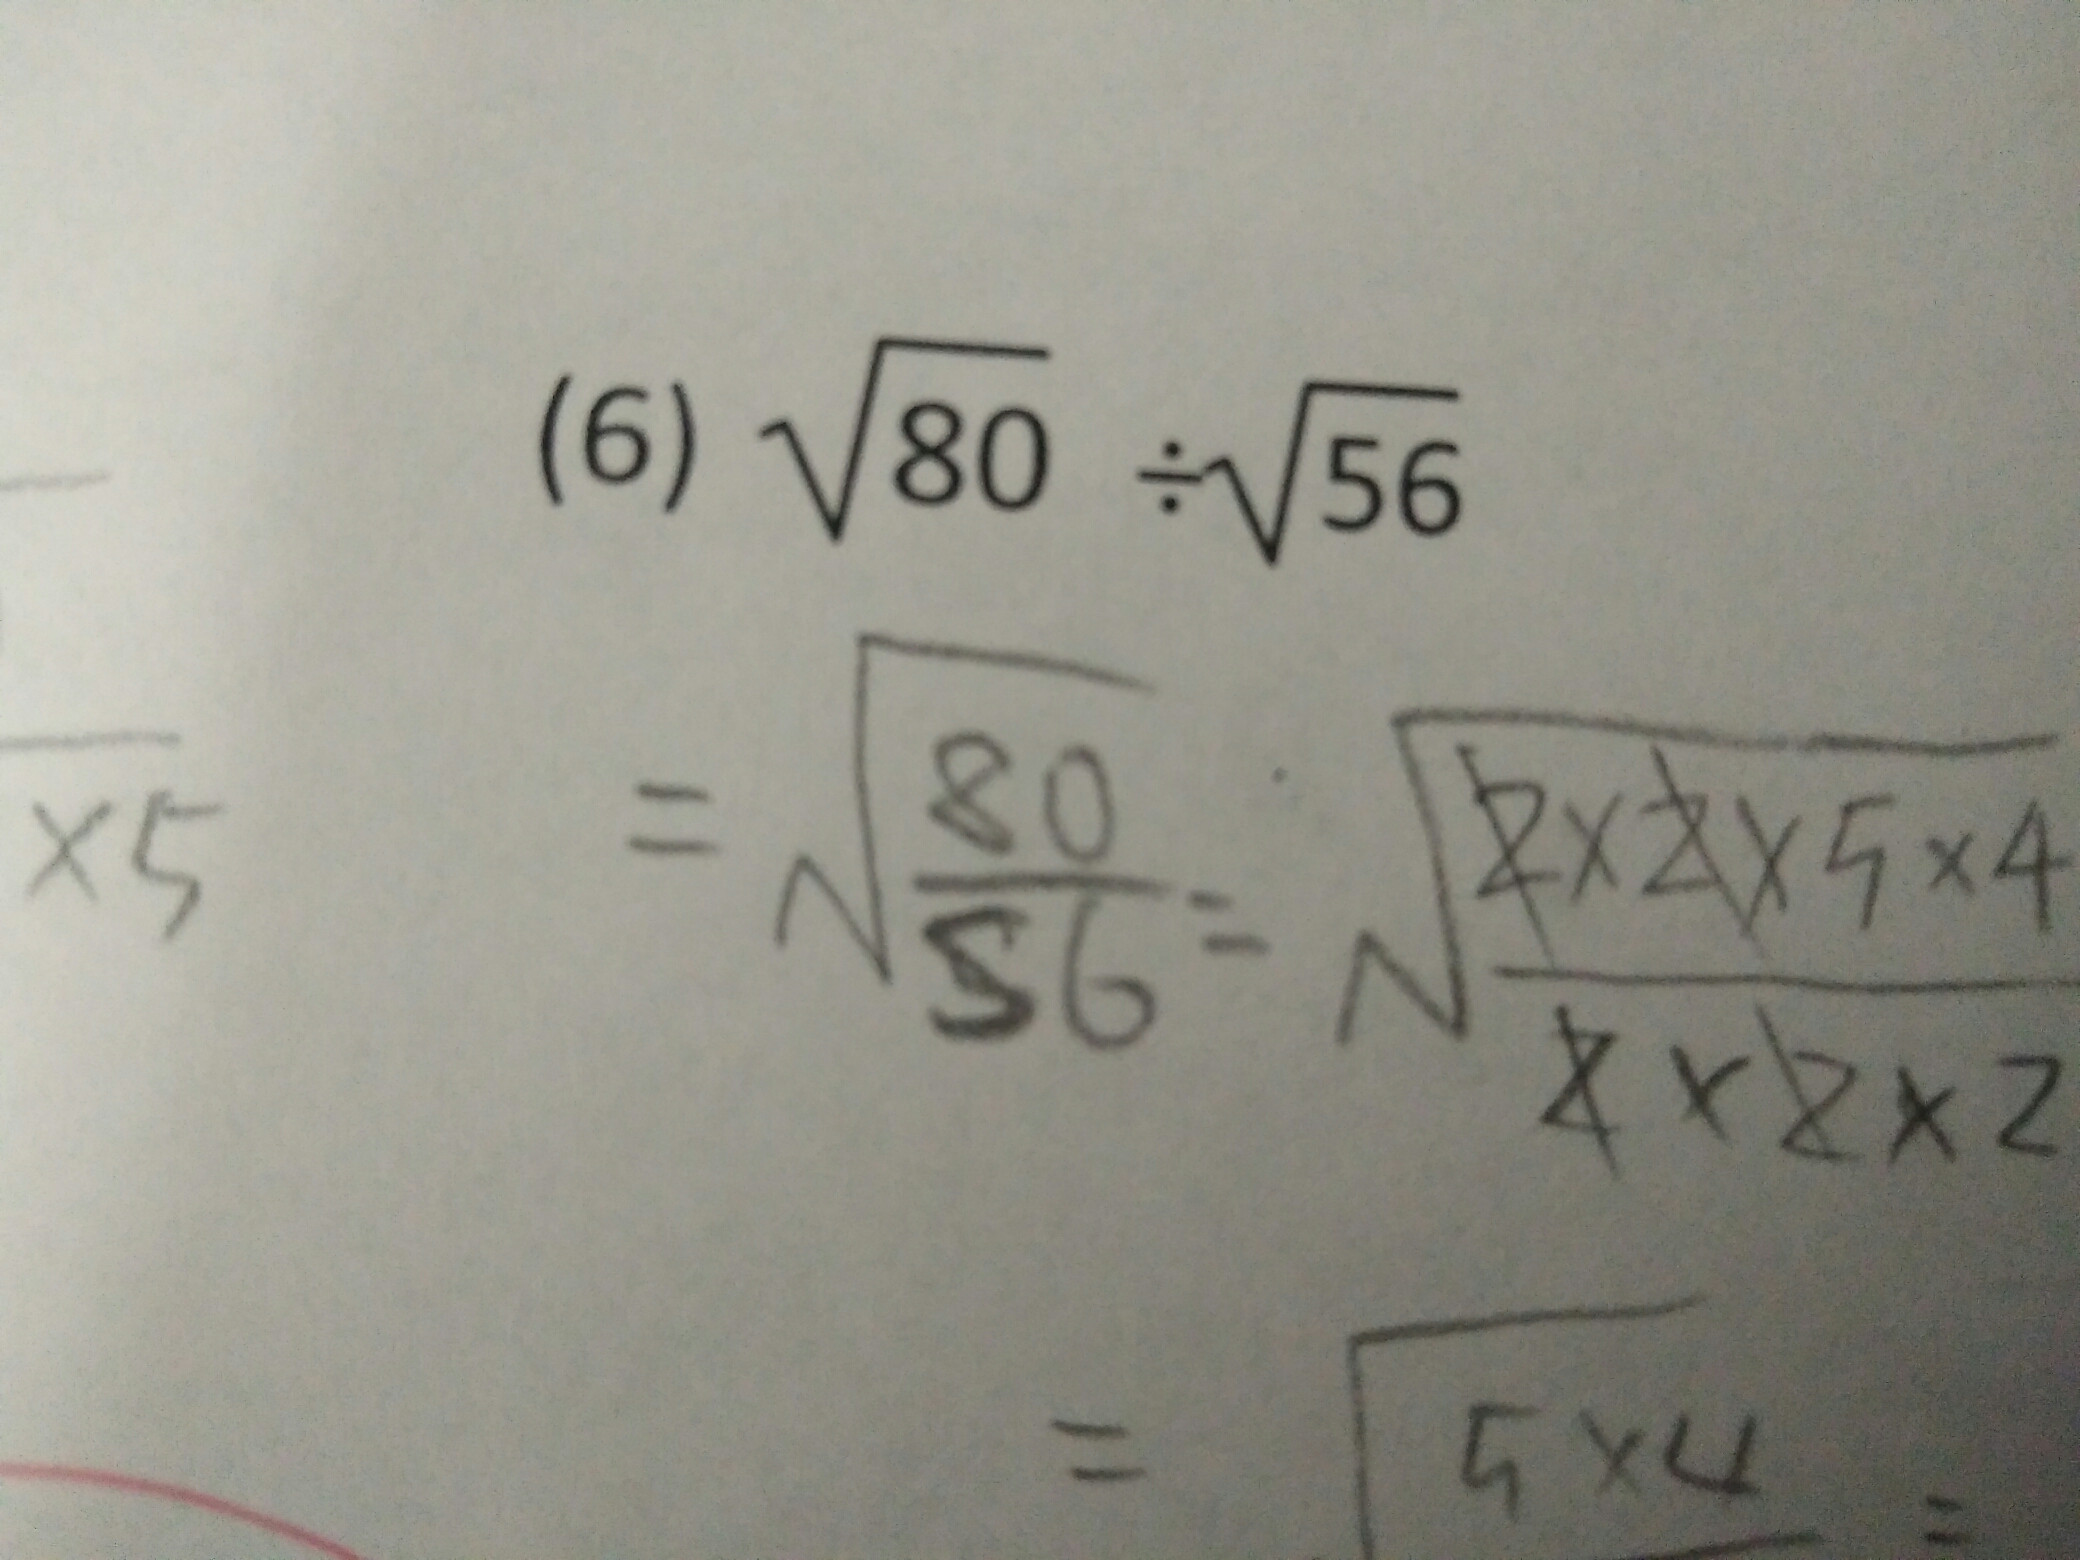 (6) √80 ÷√56
×5
= √80/56 = √2×2×5×4/2×2×2
= √5×4 =